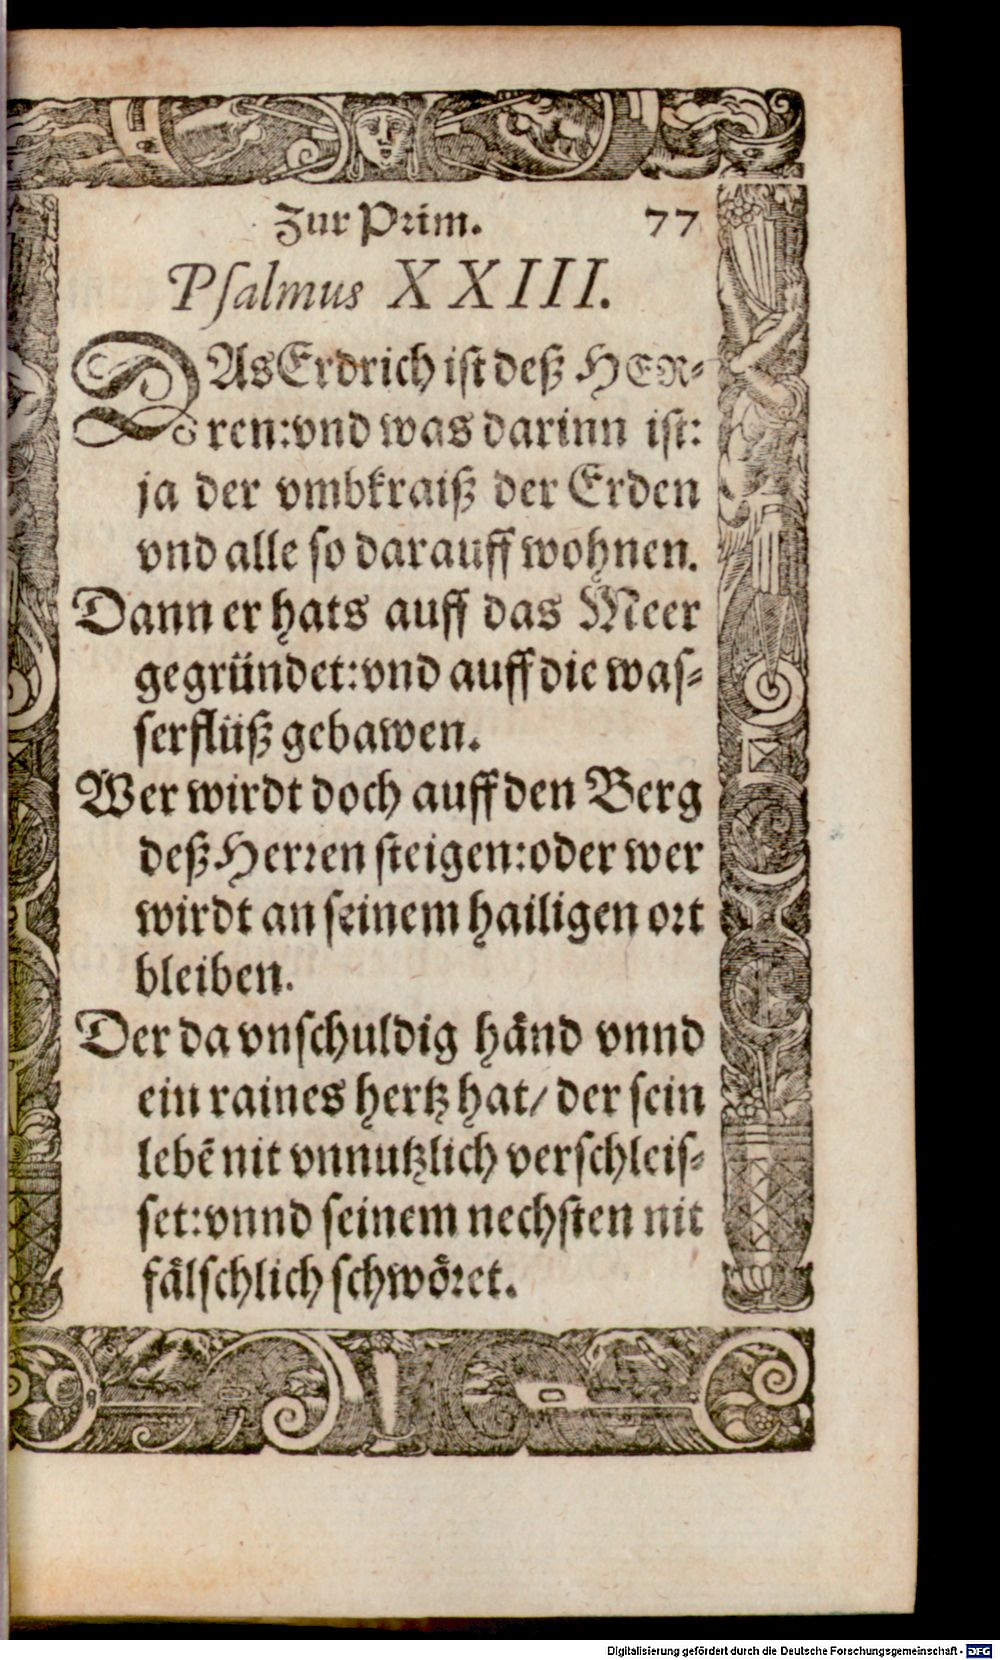 Zur Prim. 77
Psalmus XXIII.
DAs Erdrich ist deß HER-
ren: vnd was darinn ist:
ja der vmbkraiß der Erden
vnd alle so darauff wohnen.
Dann er hats auff das Meer
gegründet: vnd auff die was-
serflüß gebawen.
Wer wirdt doch auff den Berg
deß Herren steigen: oder wer
wirdt an seinem hailigen ort
bleiben.
Der da vnschuldig händ vnnd
ein raines hertz hat/ der sein
lebē nit vnnutzlich verschleis-
set: vnnd seinem nechsten nit
fälschlich schwöret.
Digitalisierung gefördert durch die Deutsche Forschungsgemeinschaft - DFG